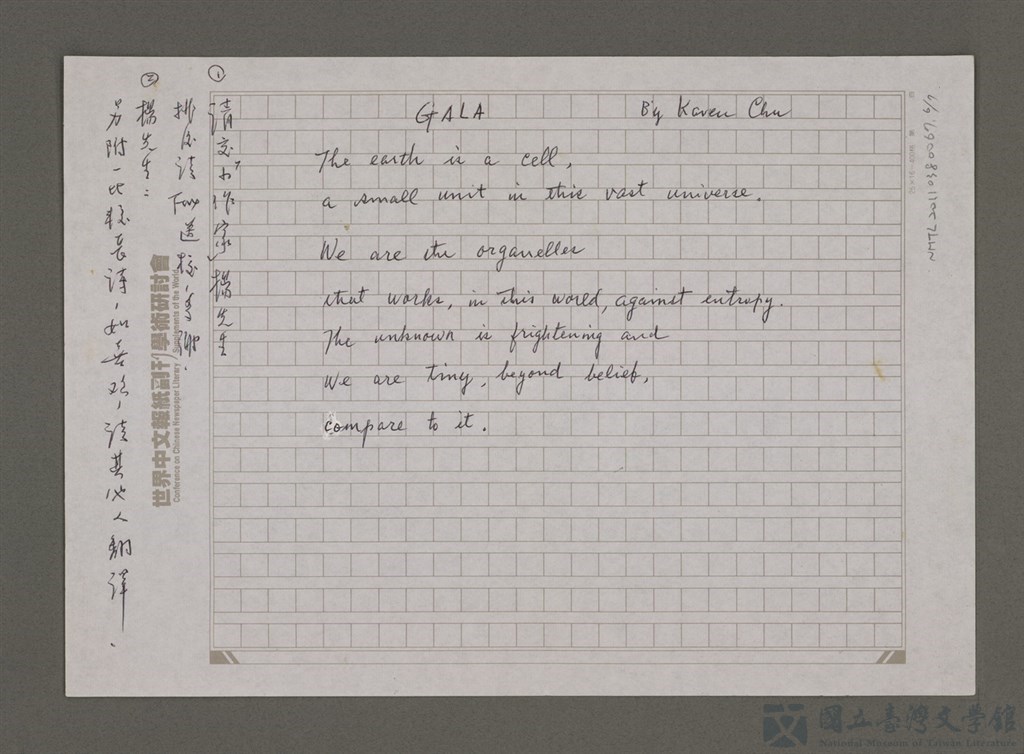 GALA By Karen Chu
The earth is a cell,
a small unit in this vast universe.
We are the organelles
that works, in this world, against entropy.
The unknown is frightening and
We are tiny, beyond belief,
compare to it.
①
請交小作家楊先生
排後請 Fax 送校,
②
楊先生:
另附一比較長詩,如喜歡,請其他人翻譯.
世界中文報紙副刊學術研討會
Conference on Chinese Newspaper Literary Supplements of the World
NMTL20110380097, 6/9
國立臺灣文學館
National Museum of Taiwan Literature